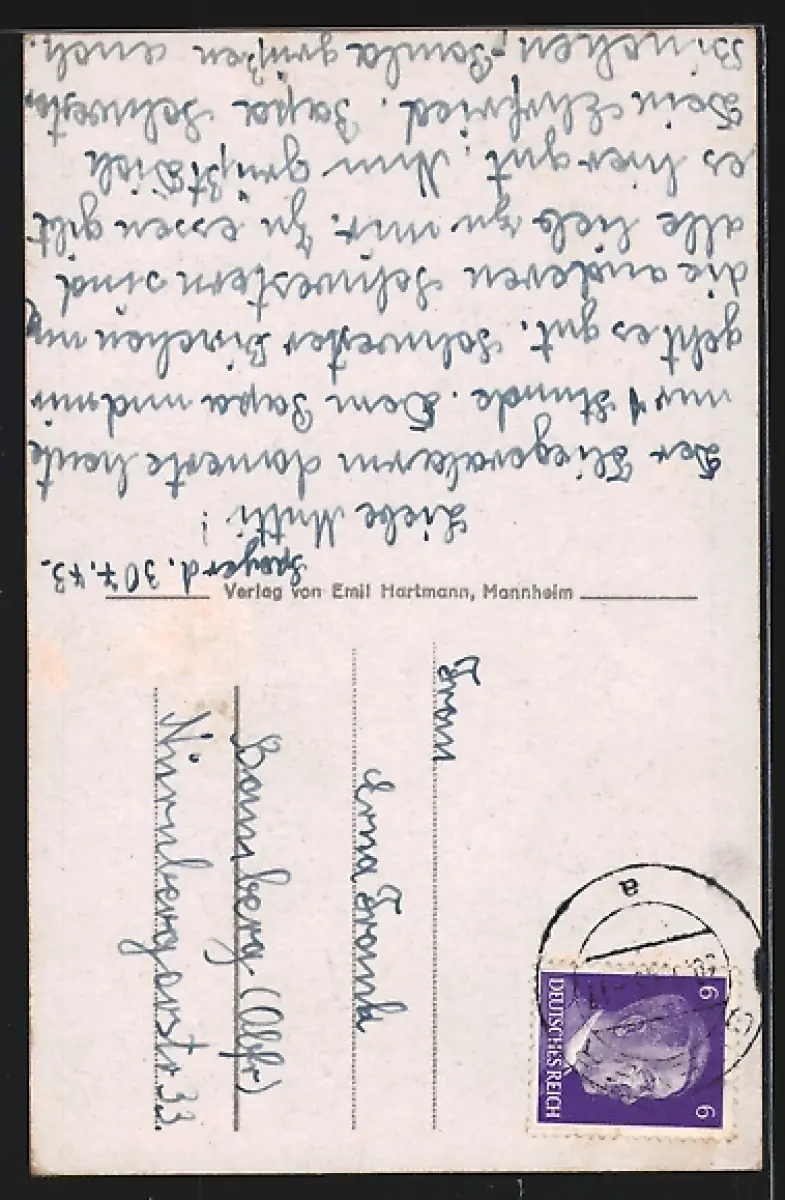 Speyer d. 30.7.43.
Liebe Mutti!
Der Fliegeralarm dauerte heute
nur 1 Stunde. Dem Papa und mir
geht es gut. Schwester Binchen und
die anderen Schwestern sind
alle lieb zu mir. Zu essen gibt
es hier gut. Nun grüßt Dich
Dein Ehrfried. Papa Schwester
Binchen, grüßen auch.
Verlag von Emil Hartmann, Mannheim
Frau
Erna Frank
Bamberg (Obfr)
Nürnbergerstr. 33
a
6
6
DEUTSCHES REICH